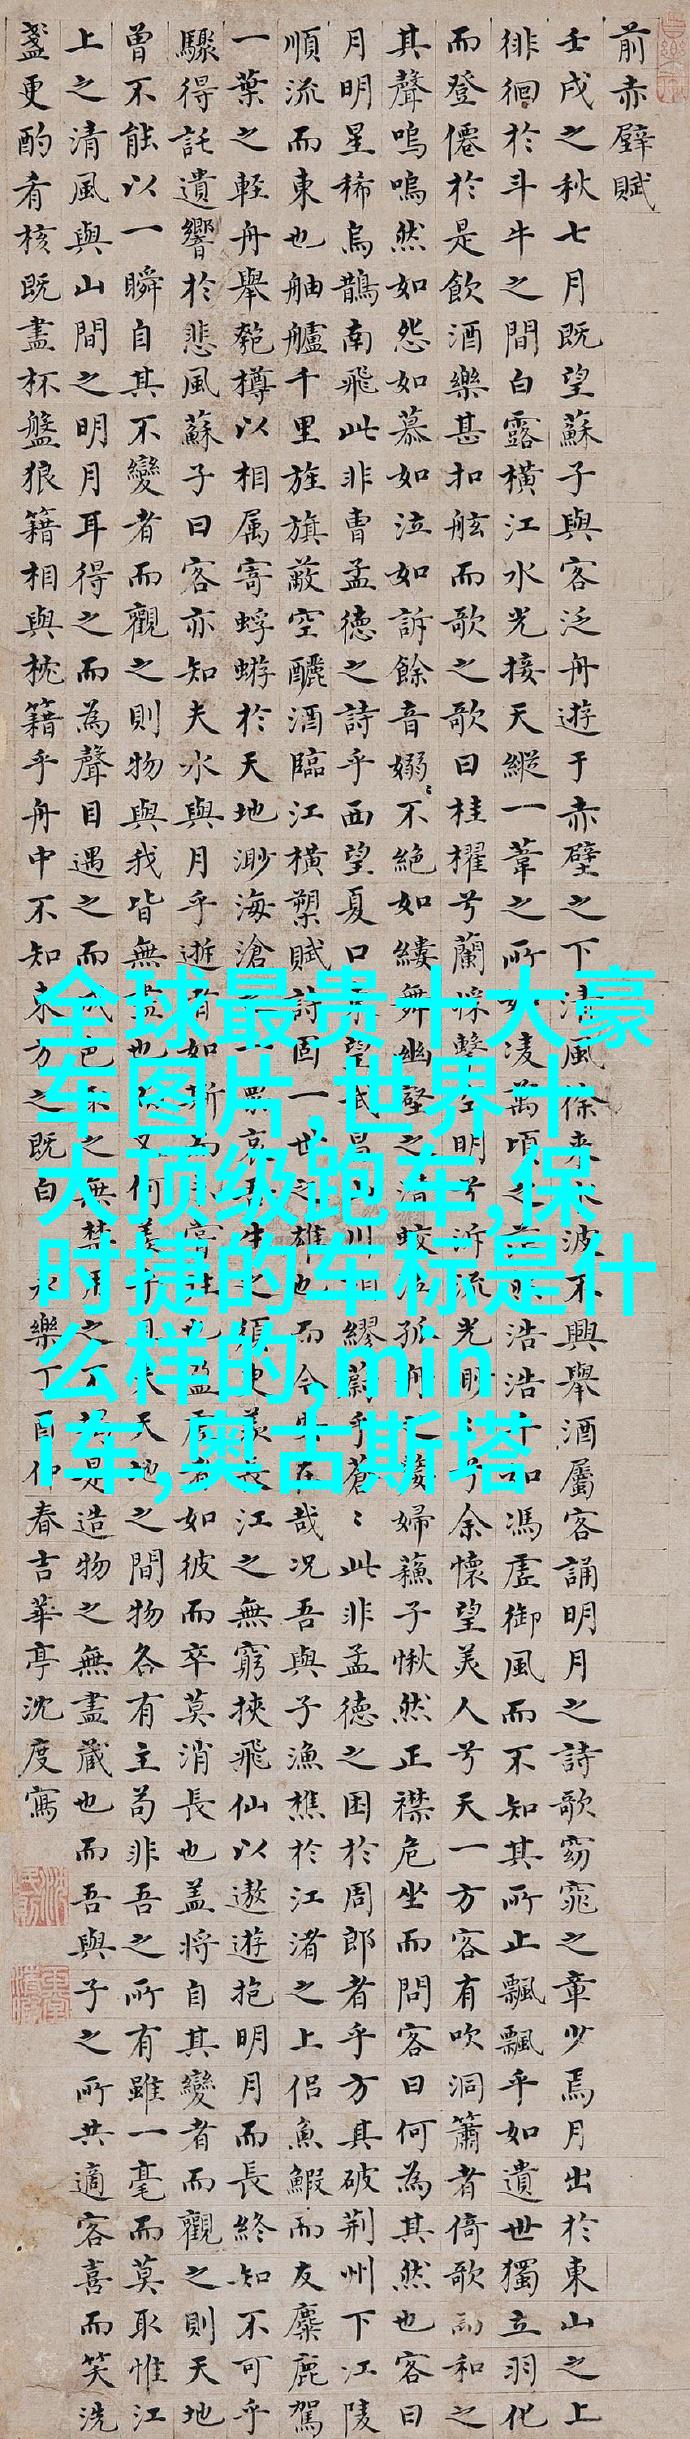 前赤壁賦
壬戌之秋七月既望蘇子與客泛舟遊于赤壁之下清風徐来水波不興舉酒屬客誦明月之詩歌窈窕之章少焉月出於東山之上
徘徊於斗牛之間白露橫江水光接天縱一葦之所如凌萬頃之浩浩乎如馮虛御風而不知其所止飄飄乎如遺世獨立羽化
而登僊於是飲酒樂甚扣舷而歌之歌曰桂櫂兮蘭槳擊空明兮泝流光眇兮余懷望美人兮天一方客有吹洞簫者倚歌而和之
其聲嗚嗚然如怨如慕如泣如訴餘音嫋ミ不絕如縷舞幽壑之潛蛟泣孤舟之嫠婦蘓子愀然正襟危坐而問客曰何為其然也客曰
月明星稀烏鵲南飛此非曹孟德之詩乎西望夏口東望武昌山川相繆鬱乎蒼ミ此非孟德之困於周郎者乎方其破荆州下江陵
順流而東也舳艫千里旌旗蔽空釃酒臨江橫槊賦詩固一世之雄也而今安在哉況吾與子漁樵於江渚之上侣魚鰕而友麋鹿駕
一葉之輕舟舉匏樽以相属寄蜉蝣於天地渺海滄一粟哀生之須臾羨長江之無窮挾飛仙以遨遊抱明月而長終知不可乎
驟得託遺響於悲風蘇子曰客亦知夫水與月乎逝有如斯而嘗往也盈虛者如彼而卒莫消長也盖將自其變者而觀之則天地
曾不能以一瞬自其不變者而觀之則物與我皆無盡也又何羨乎且夫天地之間物各有主苟非吾之所有雖一毫而莫取惟江
上之清風與山間之明月耳得之而為聲目遇之而成色取之無禁用之不竭是造物之無盡藏也而吾與子之所共適客喜而笑洗
盞更酌肴核既盡杯盤狼籍相與枕籍乎舟中不知東方之既白 永樂丁酉仲春吉華亭沈度寫
全球最贵十大豪
车图片,世界十
大顶级跑车,保
时捷的车标是什
么样的,min
i车,奥古斯塔